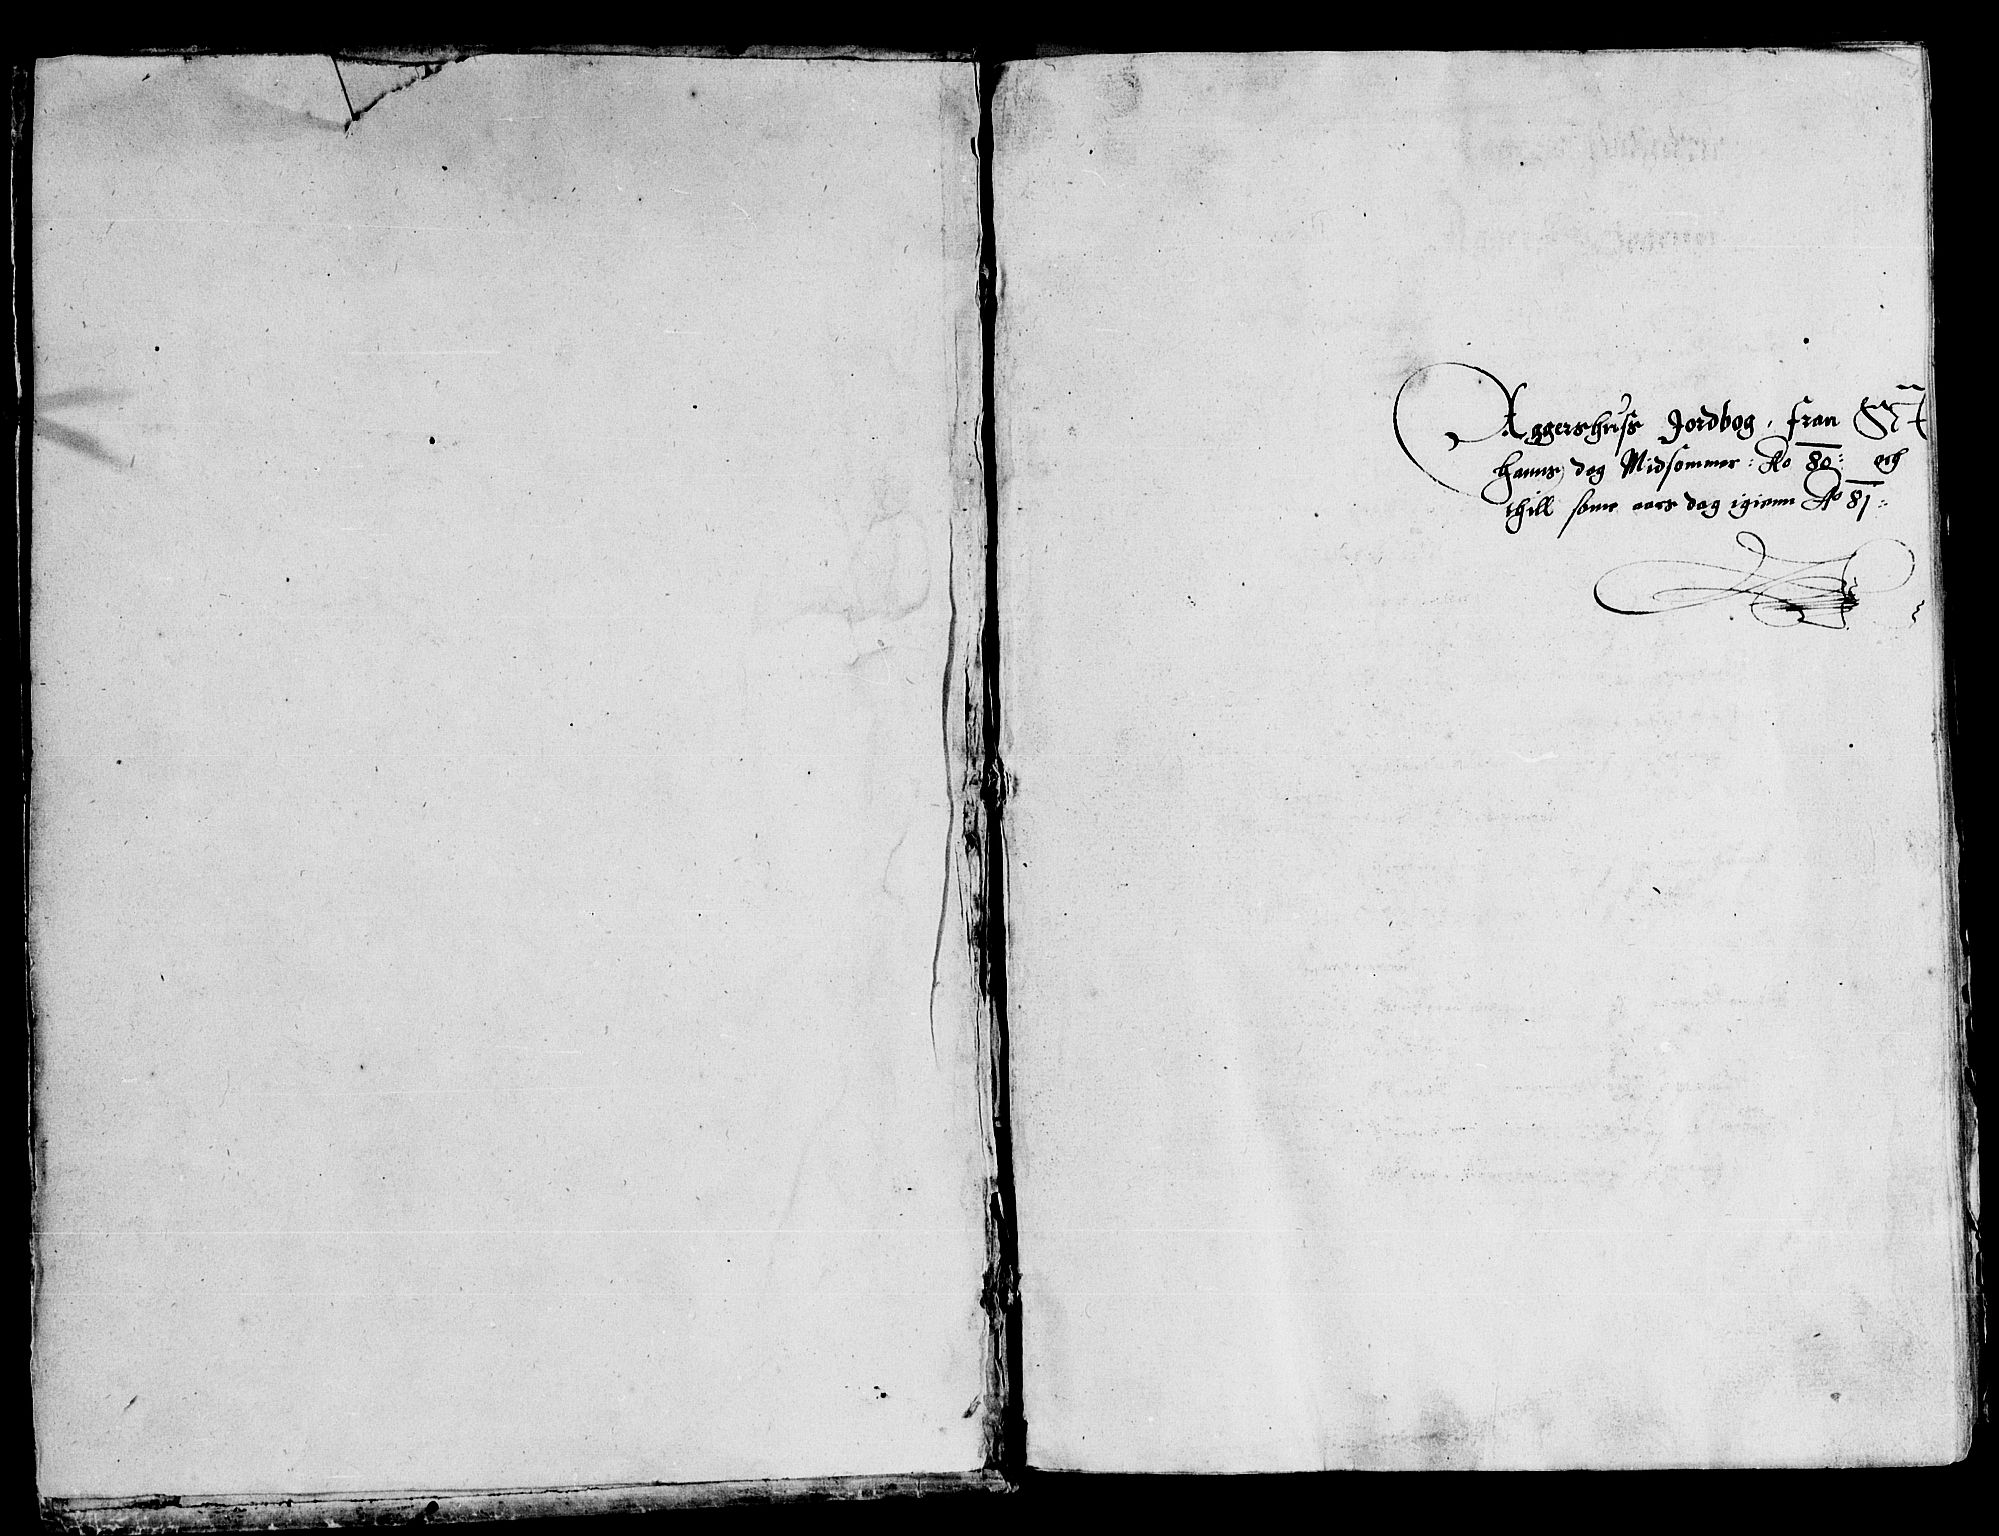 Aggershuss Jordbog, fran S:t
Hanns dag Midsommer: Ao 80: och
thill same aars dag igienn Ao 81: